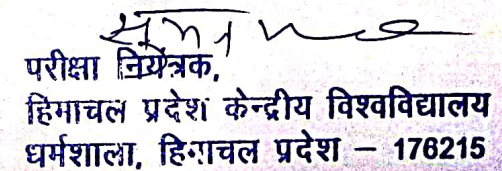 परीक्षा नियंत्रक,
हिमाचल प्रदेश केन्द्रीय विश्वविद्यालय
धर्मशाला, हिमाचल प्रदेश – 176215